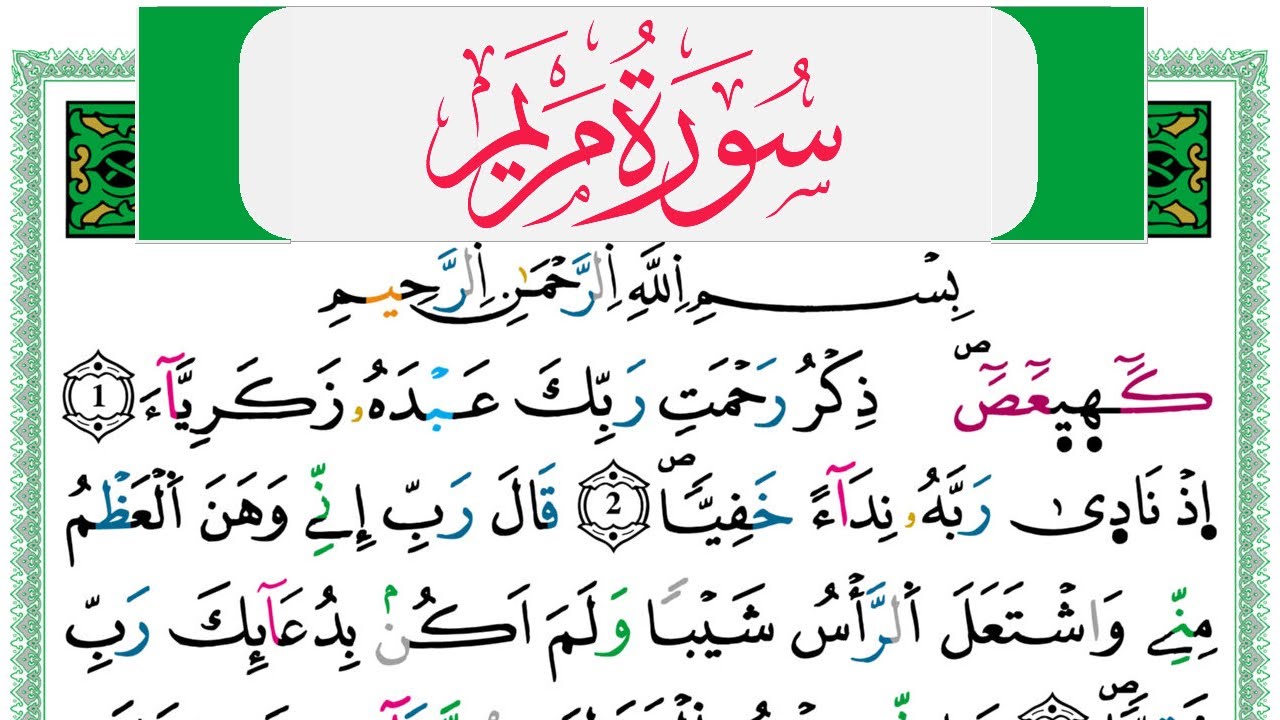 سُورَةُ مَرْيَمَ
بِسْمِ اِللَّهِ اِلرَّحْمَٰنِ اِلرَّحِيمِ
كَٓهۭيۭعَٓصَٓۖ ذِكْرُ رَحْمَتِ رَبِّكَ عَبْدَهُۥ زَكَرِيَّآءَ 1
اِذْ نَادۭيٰ رَبَّهُۥ نِدَآءً خَفِيّٗاۖ 2 قَالَ رَبِّ إِنِّے وَهَنَ اَ۬لْعَظْمُ
مِنِّے وَاشْتَعَلَ اَ۬لرَّأْسُ شَيْباٗ وَلَمَ اَكُنۢ بِدُعَآئِكَ رَبِّ